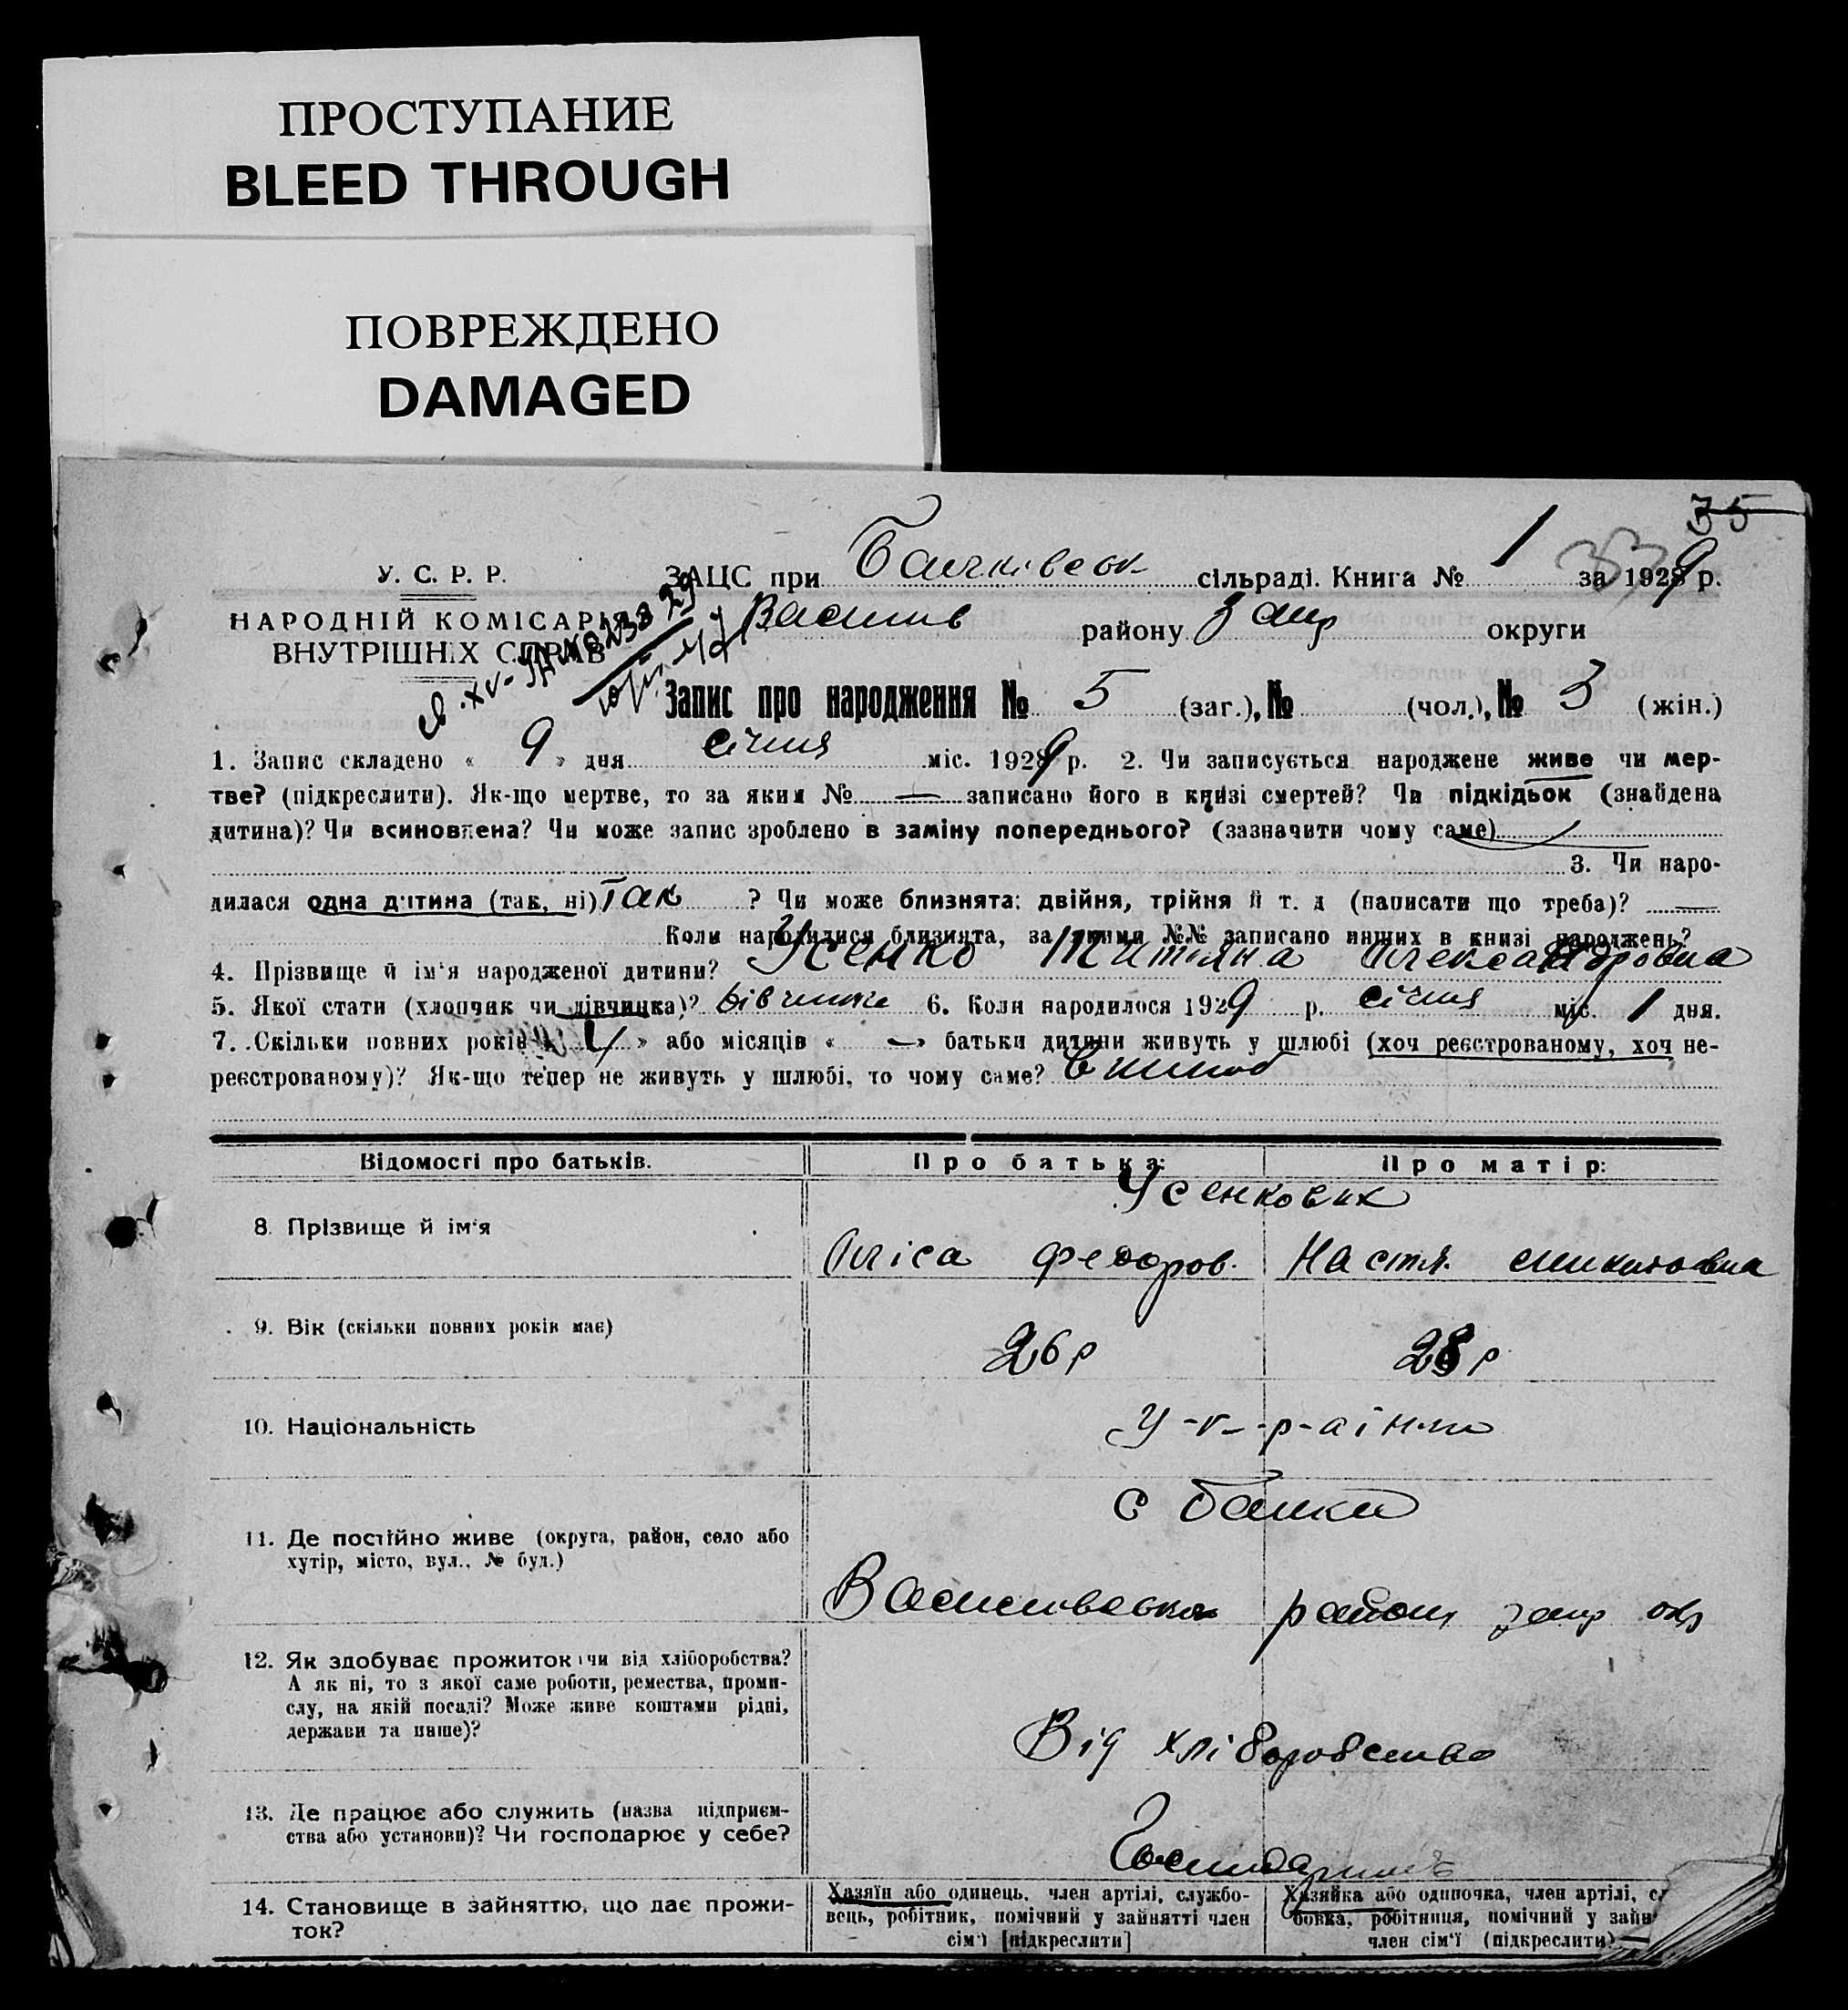 ПРОСТУПАНИЕ
BLEED THROUGH
ПОВРЕЖДЕНО
DAMAGED
35
У. С. Р. Р.
НАРОДНІЙ КОМІСАРІЯТ
ВНУТРІШНІХ СПРАВ
ЗАЦС при сільраді. Книга № 1 за 1929 р.
району Запр округи
Запис про народження № 5 (заг.), № (чол.), № 3 (жін.)
1. Запис складено « 9 » дня січня міс. 1929 р. 2. Чи записується народжене живе чи мер-
тве? (підкреслити). Як-що мертве, то за яким № — записано його в книзі смертей? Чи підкідьок (знайдена
дитина)? Чи всиновлена? Чи може запис зроблено в заміну попереднього? (зазначити чому саме)
3. Чи наро-
дилася одна дитина (так, ні) Так ? Чи може близнята: двійня, трійня й т. д (написати що треба)? —
Коли народилися близнята, за якими №№ записано инших в книзі народжень?
4. Прізвище й ім'я народженої дитини? Усенко Титяна Олександровна
5. Якої стати (хлопчик чи дівчинка)? дівчинка 6. Коли народилося 1929 р. січня міс. 1 дня.
7. Скільки повних років « 4 » або місяців « — » батьки дитини живуть у шлюбі (хоч реєстрованому, хоч не-
реєстрованому)? Як-що тепер не живуть у шлюбі, то чому саме?
Відомості про батьків. Про батька: Про матір:
Усенкових
8. Прізвище й ім'я Олiса Федоров. Настя
9. Вік (скільки повних років має) 26 р 28 р
10. Національність У-к-р-аінці
с Балки
11. Де постійно живе (округа, район, село або
хутір, місто, вул., № буд.)
Василівського району запр окр
12. Як здобуває прожиток чи від хліборобства?
А як ні, то з якої саме роботи, ремества, проми-
слу, на якій посаді? Може живе коштами рідні,
держави та инше)?
Від хліборобства
13. Де працює або служить (назва підприєм-
ства або установи)? Чи господарює у себе?
14. Становище в зайняттю, що дає прожи-
ток?
Хазяїн або одинець, член артілі, службо-
вець, робітник, помічний у зайнятті член
сім'ї [підкреслити]
Хазяйка або одиночка, член артілі,
бовка, робітниця, помічний у зайн
член сім'ї (підкреслити)